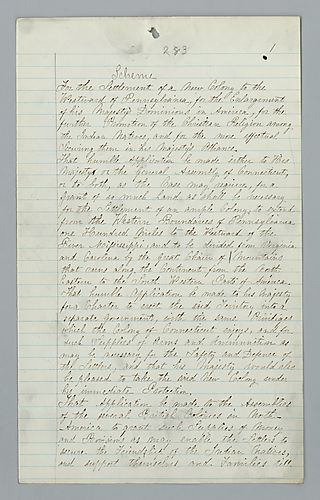 283
1
Scheme
For the Settlement of a New Colony to the
Westward of Pennsylvania, for the Enlargement
of his Majesty's Dominions in America, for the
further Promotion of the Christian Religion among
the Indian Natives, and for the more effectual
Securing them in his Majesty's Alliance.
That humble Application be made either to His
Majesty or the General Assembly of Connecticut,
or to both, as the Case may require, for a
Grant of so much Land as shall be necessary
for the Settlement of an ample Colony, to extend
from the Western Boundaries of Pennsylvania
one Hundred Miles to the Westward of the
River Missisippi, and to be divided from Virginia
and Carolina by the Great Chain of Mountains
that runs along the Continent from the North
Eastern to the South Western Parts of America.
That humble Application be made to his Majesty
for a Charter to erect the said Territory into a
separate Government, with the same Privileges
which the Colony of Connecticut enjoys, and for
such Supplies of Arms and Ammunition as
may be necessary for the Safety and Defence of
the Settlers, and that his Majesty would also
be pleased to take the said New Colony under
his immediate Protection.
That Application be made to the Assemblies
of the several British Colonies in North
America to grant such Supplies of Money
and Provisions as may enable the Settlers to
secure the Friendship of the Indian Natives,
and support themselves and Families till